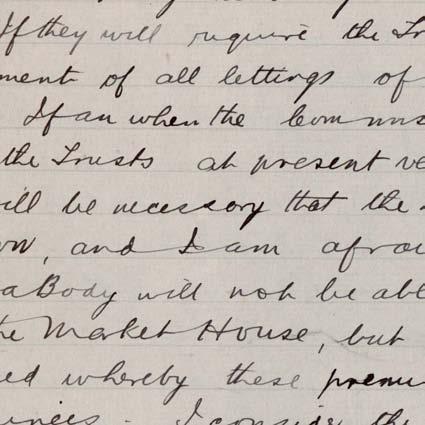 If they will require the Tr
ment of all lettings of
If an when the Commiss
the Trusts at present ve
ill be necessary that the
wn, and I am afrai
a Body will not be abl
he Market House, but
ed whereby these premi
I consider the